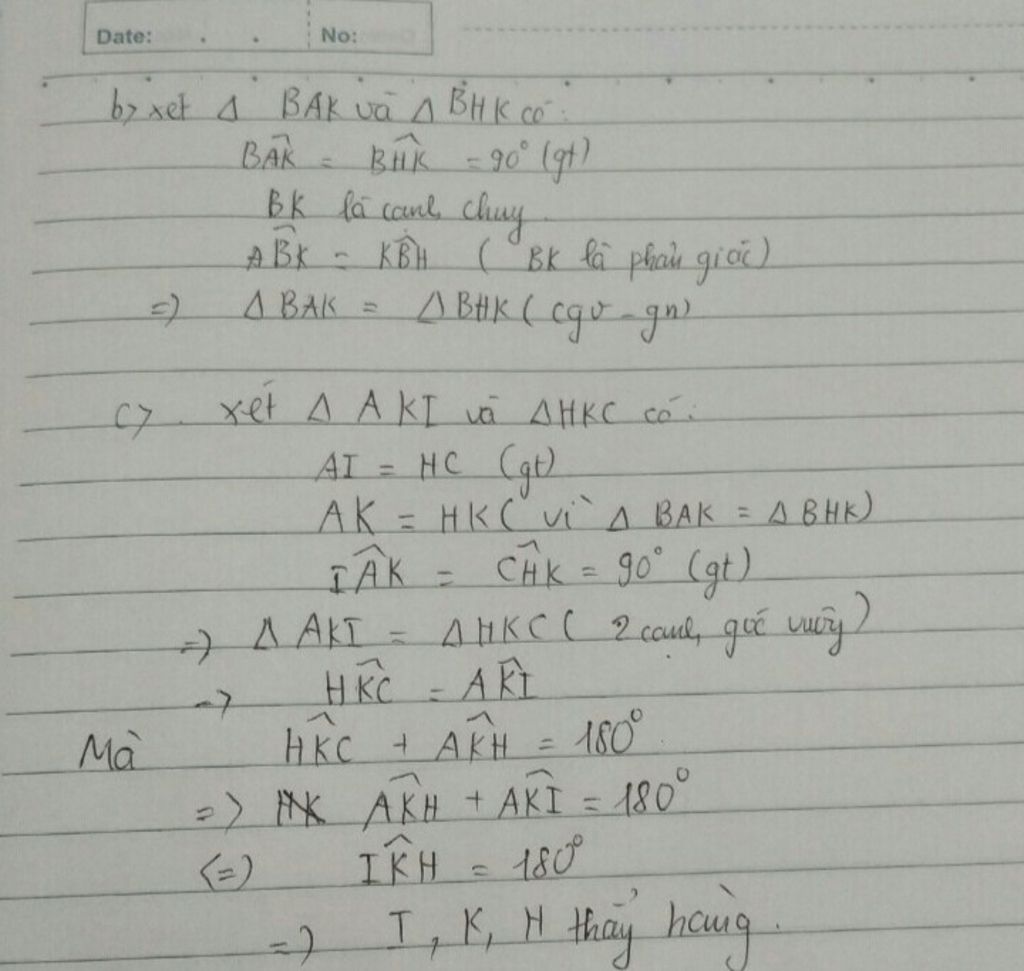 Date: . . No:
b> xét Δ BAK và Δ BHK có:
BÂK = BĤK = 90° (gt)
BK là cạnh chug
AB̂K = KB̂H ( BK là phân giác)
=> Δ BAK = Δ BHK ( cgv - gn)
c> xét Δ AKI và ΔHKC có:
AI = HC (gt)
AK = HK ( vì Δ BAK = Δ BHK)
IÂK = CĤK = 90° (gt)
=> Δ AKI = Δ HKC ( 2 cạnh góc vuông)
-> HK̂C = AK̂I
Mà HK̂C + AK̂H = 180°
=> AK̂H + AK̂I = 180°
<=> IK̂H = 180°
=> I, K, H thẳg hàng.